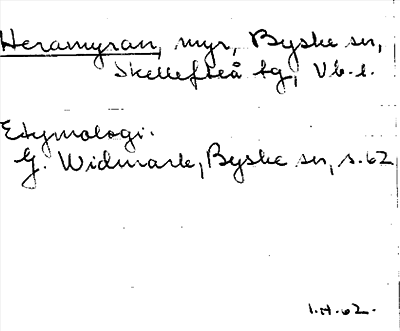 Heramyran, myr, Byske sn,
Skellefteå tg, Vb. l.
Etymologi.
G. Widmark, Byske sn, s. 62
1.H.62.